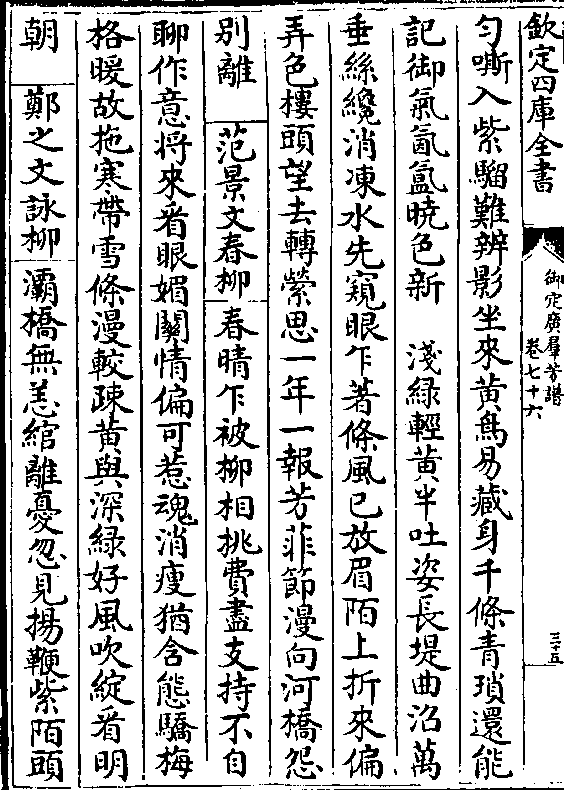 欽定四庫全書
御定廣羣芳譜
卷七十六
三十五
匀嘶入紫騮難辨影坐來黄鳥易藏身千條青瑣還能
記御氣氤氲曉色新　淺緑輕黄半吐姿長堤曲沼萬
垂絲纔消凍水先窺眼乍著條風已放眉陌上折來偏
弄色樓頭望去轉縈思一年一報芳菲節漫向河橋怨
别離　范景文春柳　春晴乍被柳相挑費盡支持不自
聊作意將來看眼媚關情偏可惹魂消瘦猶含態驕梅
格暖故拖寒帶雪條漫較疎黄與深緑好風吹綻看明
朝　鄭之文詠柳　灞橋無恙綰離憂忽見揚鞭紫陌頭